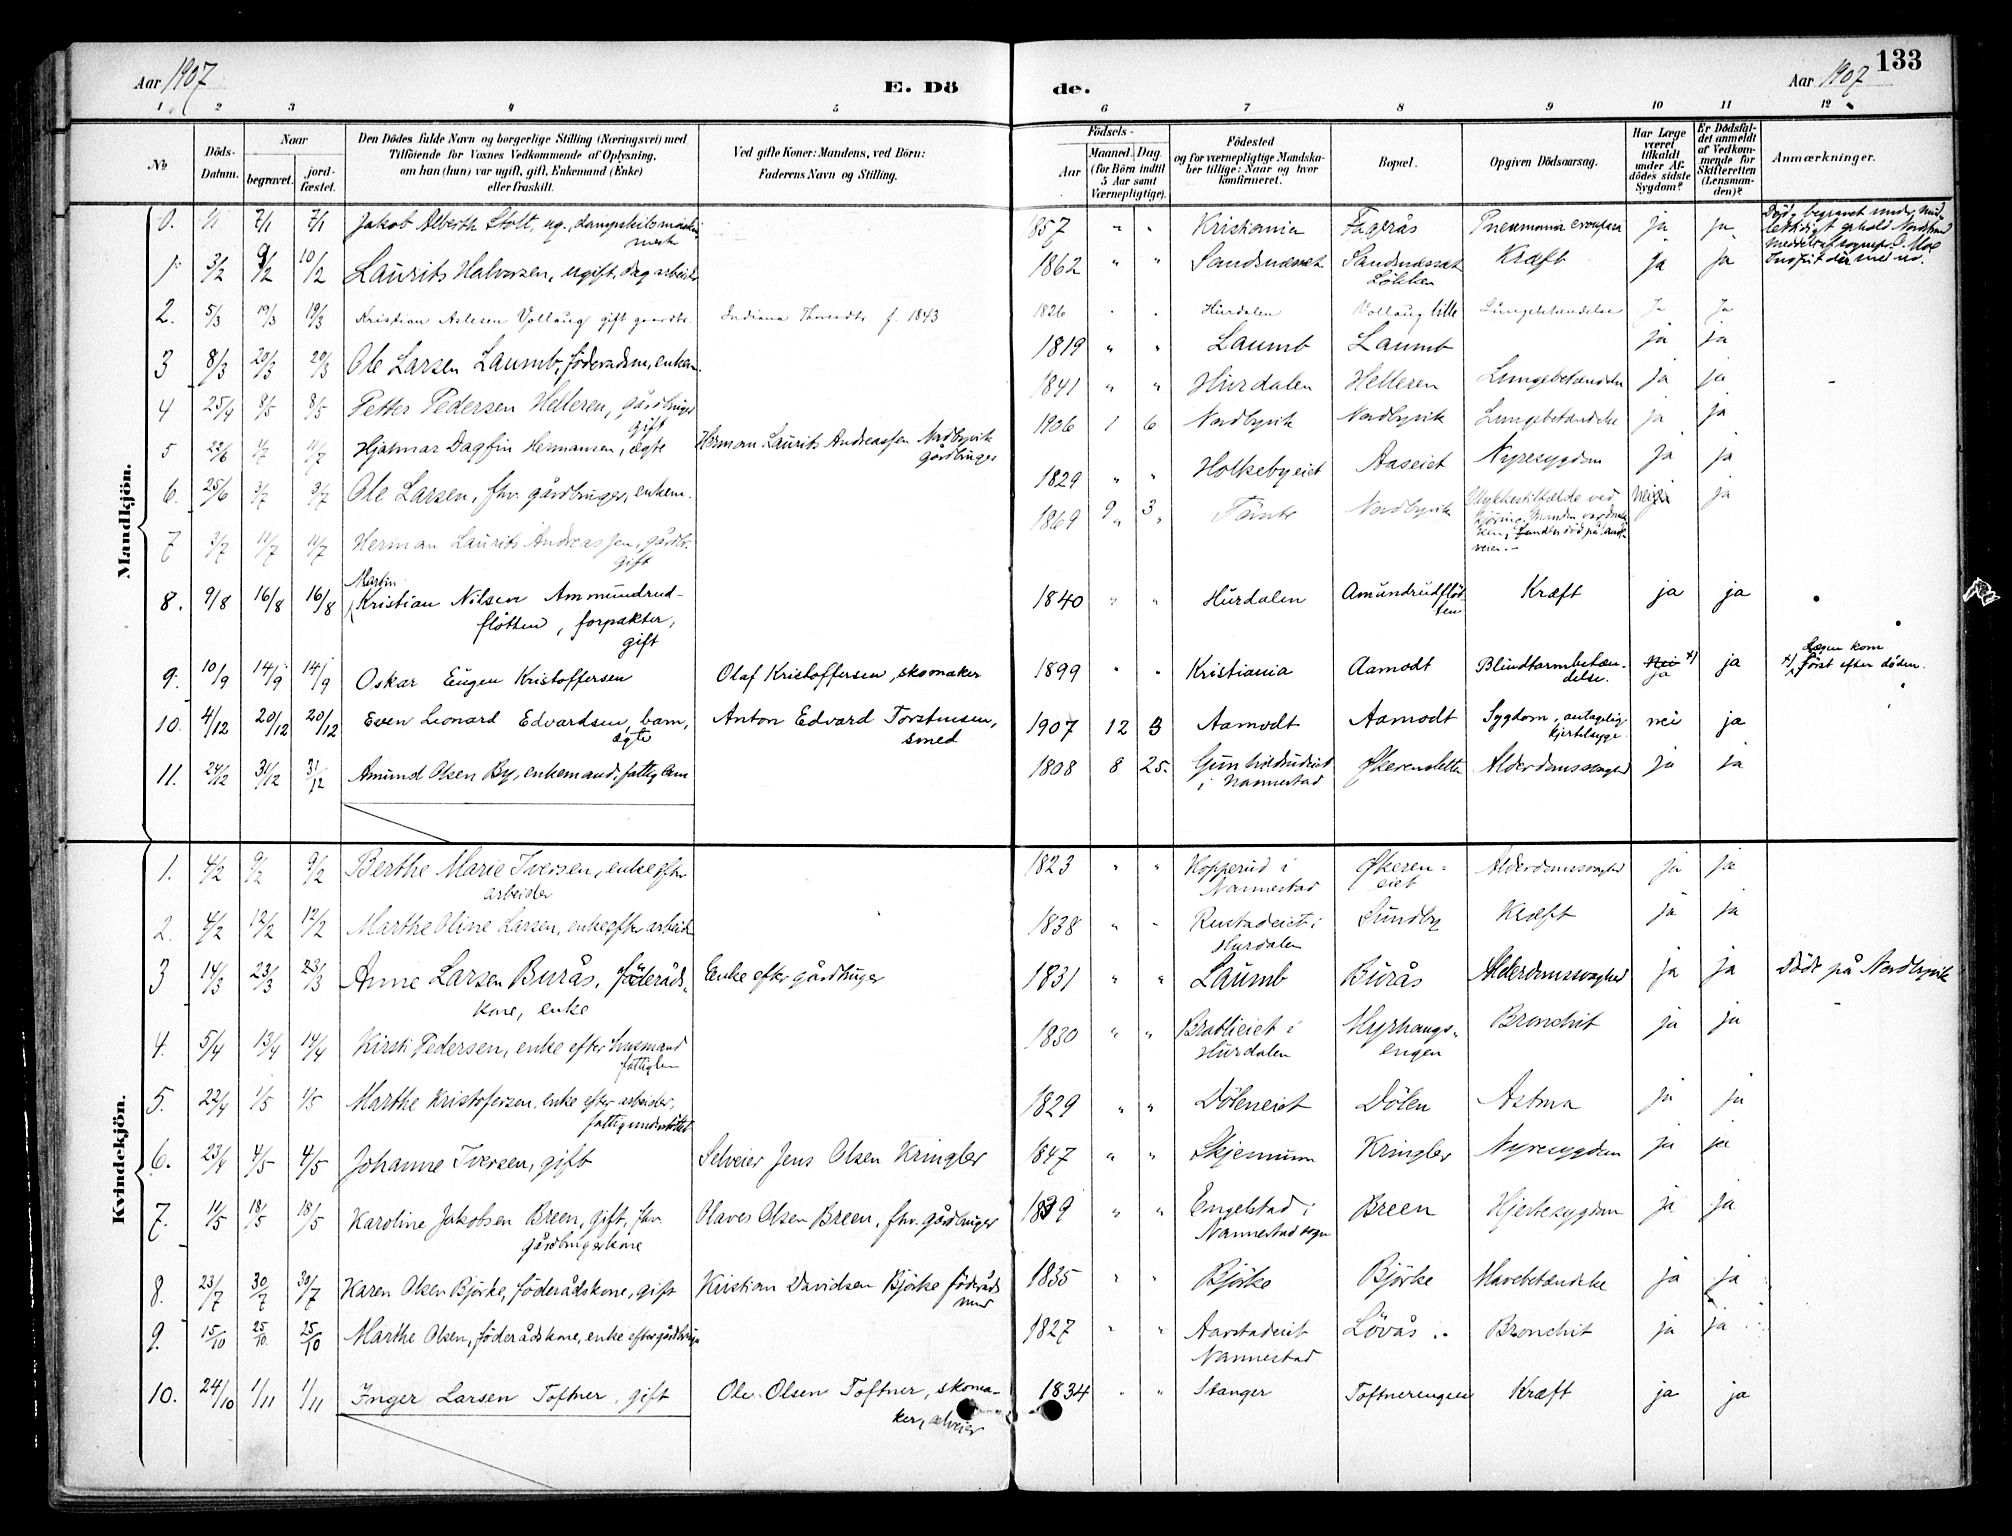 Aar 1907
E. Dö
de.
Aar 1907
133
1 2 3 4 5 6 7 8 9 10 11 12
No
Döds-Datum.
Naar
begravet.
jord-fæstet.
Den Dödes fulde Navn og borgerlige Stilling (Næringsvei) med
Tilföiende for Voxnes Vedkommende af Oplysning,
om han (hun) var ugift, gift, Enkemand (Enke)
eller fraskilt.
Ved gifte Koner: Mandens, ved Börn:
Faderens Navn og Stilling.
Födsels-
Aar
Maaned. Dag
(for Börn indtil
5 Aar samt
Værnepligtige).
Födested
og for værnepligtige Mandska-
ber tillige: Naar og hvor
konfirmeret.
Bopæl.
Opgiven Dödsaarsag.
Har Læge
været
tilkaldt
under Af-
dödes sidste
Sygdom?
Er Dödsfal-
det anmeldt
af Vedkom-
mende for
Skifteretten
(Lensman-
den)?
Anmærkninger.
Mandkjön.
0. 1/1 7/1 7/1 Jakob Alberth Stolt, ug., dampskibsmaskin- 857 " " Kristiania Fagerås Pneumonia crouposa ja ja
1. 3/2 9/2 10/2 Laurits Halvorsen, ugift, dagarbeider 1862 " " Sandsnæsset Sandsnæsset Kræft ja ja
Løkken
2. 5/3 19/3 19/3 Kristian Aslesen Vollaug gift gaardbr. Indiana Thorvaldsdtr f. 1843 1826 " " Hurdalen Vollaug lille Lungebetændelse Ja Ja
3 8/3 20/3 20/3 Ole Larsen Laumb, föderådsm, enkem. 1819 " " Laumb Laumb ja ja
4 25/4 8/5 8/5 Petter Pedersen Helleren, gårdbruger 1841 " " Hurdalen Helleren Lungebetændelse ja ja
gift
5 22/6 1/7 11/7 Hjalmar Dagfin Hermansen, ægte Herman Laurits Andreassen Nordbyvik 1906 1 6 Nordbyvik Nordbyvik Lungebetændelse ja ja
gårdbruger
6. 25/6 3/7 3/7 Ole Larsen, fhv. gårdbruger, enkem. 1829 " " Holkebyeiet Aaseiet Nyresygdom ja ja
7 3/7 11/7 11/7 Herman Laurits Andreassen, gårdbr. 1869 9 3 Tömte Nordbyvik Ulykkestilfælde ved Nei ja
gift
kjöring. Manden var drukken, fundtes död på landveien.
8. 9/8 16/8 16/8 Martin
Kristian Nilsen Ammundrud- 1840 " " Hurdalen Amundrudflöt- Kræft ja ja
flötten, forpakter, ten
gift
9. 10/9 14/9 14/9 Oskar Eugen Kristoffersen Olaf Kristoffersen, skomaker 1899 " " Kristiania Aamodt Blindtarmbetæn- Nei x) ja x) Lægen kom
delse. ja först efter döden.
10. 4/12 20/12 20/12 Even Leonard Edvardsen, barn, Anton Edvard Torstensen, 1907 12 3 Aamodt Aamodt Sygdom, antagelig nei ja
ægte smed kjertelsyge
11. 24/12 31/12 31/12 Amund Olsen By, enkemand, fattiglem 1808 8 25. Gunhildrudeiet Økerensletta Alderdomssvaghed ja ja
i Nannestad
Kvindekjön.
1. 4/2 9/2 9/2 Berthe Marie Iversen, enke efter 1823 " " Kopperud i Økeren- Alderdomssvaghed ja ja
arbeider Nannestad eiet
2. 4/2 12/2 12/2 Marthe Oline Larsen, enke efter arbeid. 1838 " " Rustadeiet i Sundby Kræft ja ja
Hurdalen
3 14/3 23/3 23/3 Anne Larsen Burås, föderåds- Enke efter gårdbruger 1831 " " Laumb Burås Alderdomssvaghed ja ja Död på Nordbyvik
kone, enke
4. 5/4 13/4 14/4 Kirsti Pedersen, enke efter husmand 1830 " " Bratlieiet i Myrhaugs- Bronchit ja ja
fattiglem Hurdalen engen
5. 22/4 1/5 1/5 Marthe Kristofersen, enke efter arbeider, 1829 " " Döleneiet Dölen Astma ja ja
fattigunderstöttet
6. 23/4 4/5 4/5 Johanne Iversen, gift Selveier Jens Olsen Kringler 1847 " " Skjennum Kringler Nyresygdom ja ja
7. 11/5 18/5 18/5 Karoline Jakobsen Breen, gift, fhv. Olaves Olsen Breen, fhv. gårdbruger 1839 " " Engelstad i Breen Hjertesygdom ja ja
gårdbrugerkone Nannestad sogn
8. 23/7 30/7 30/7 Karen Olsen Björke, föderådskone, gift Kristian Davidsen Björke föderåds 1835 " " Björke Björke Mavebetændelse ja ja
mand
9. 15/10 25/10 25/10 Marthe Olsen, föderådskone, enke efter gårdbruger 1827 " " Aarstadeiet Lövås Bronchit ja ja
Nannestad
10. 24/10 1/11 1/11 Inger Larsen Toftner, gift Ole Olsen Toftner, skoma- 1834 " " Stanger Toftnerengen Kræft ja ja
ker, selveier